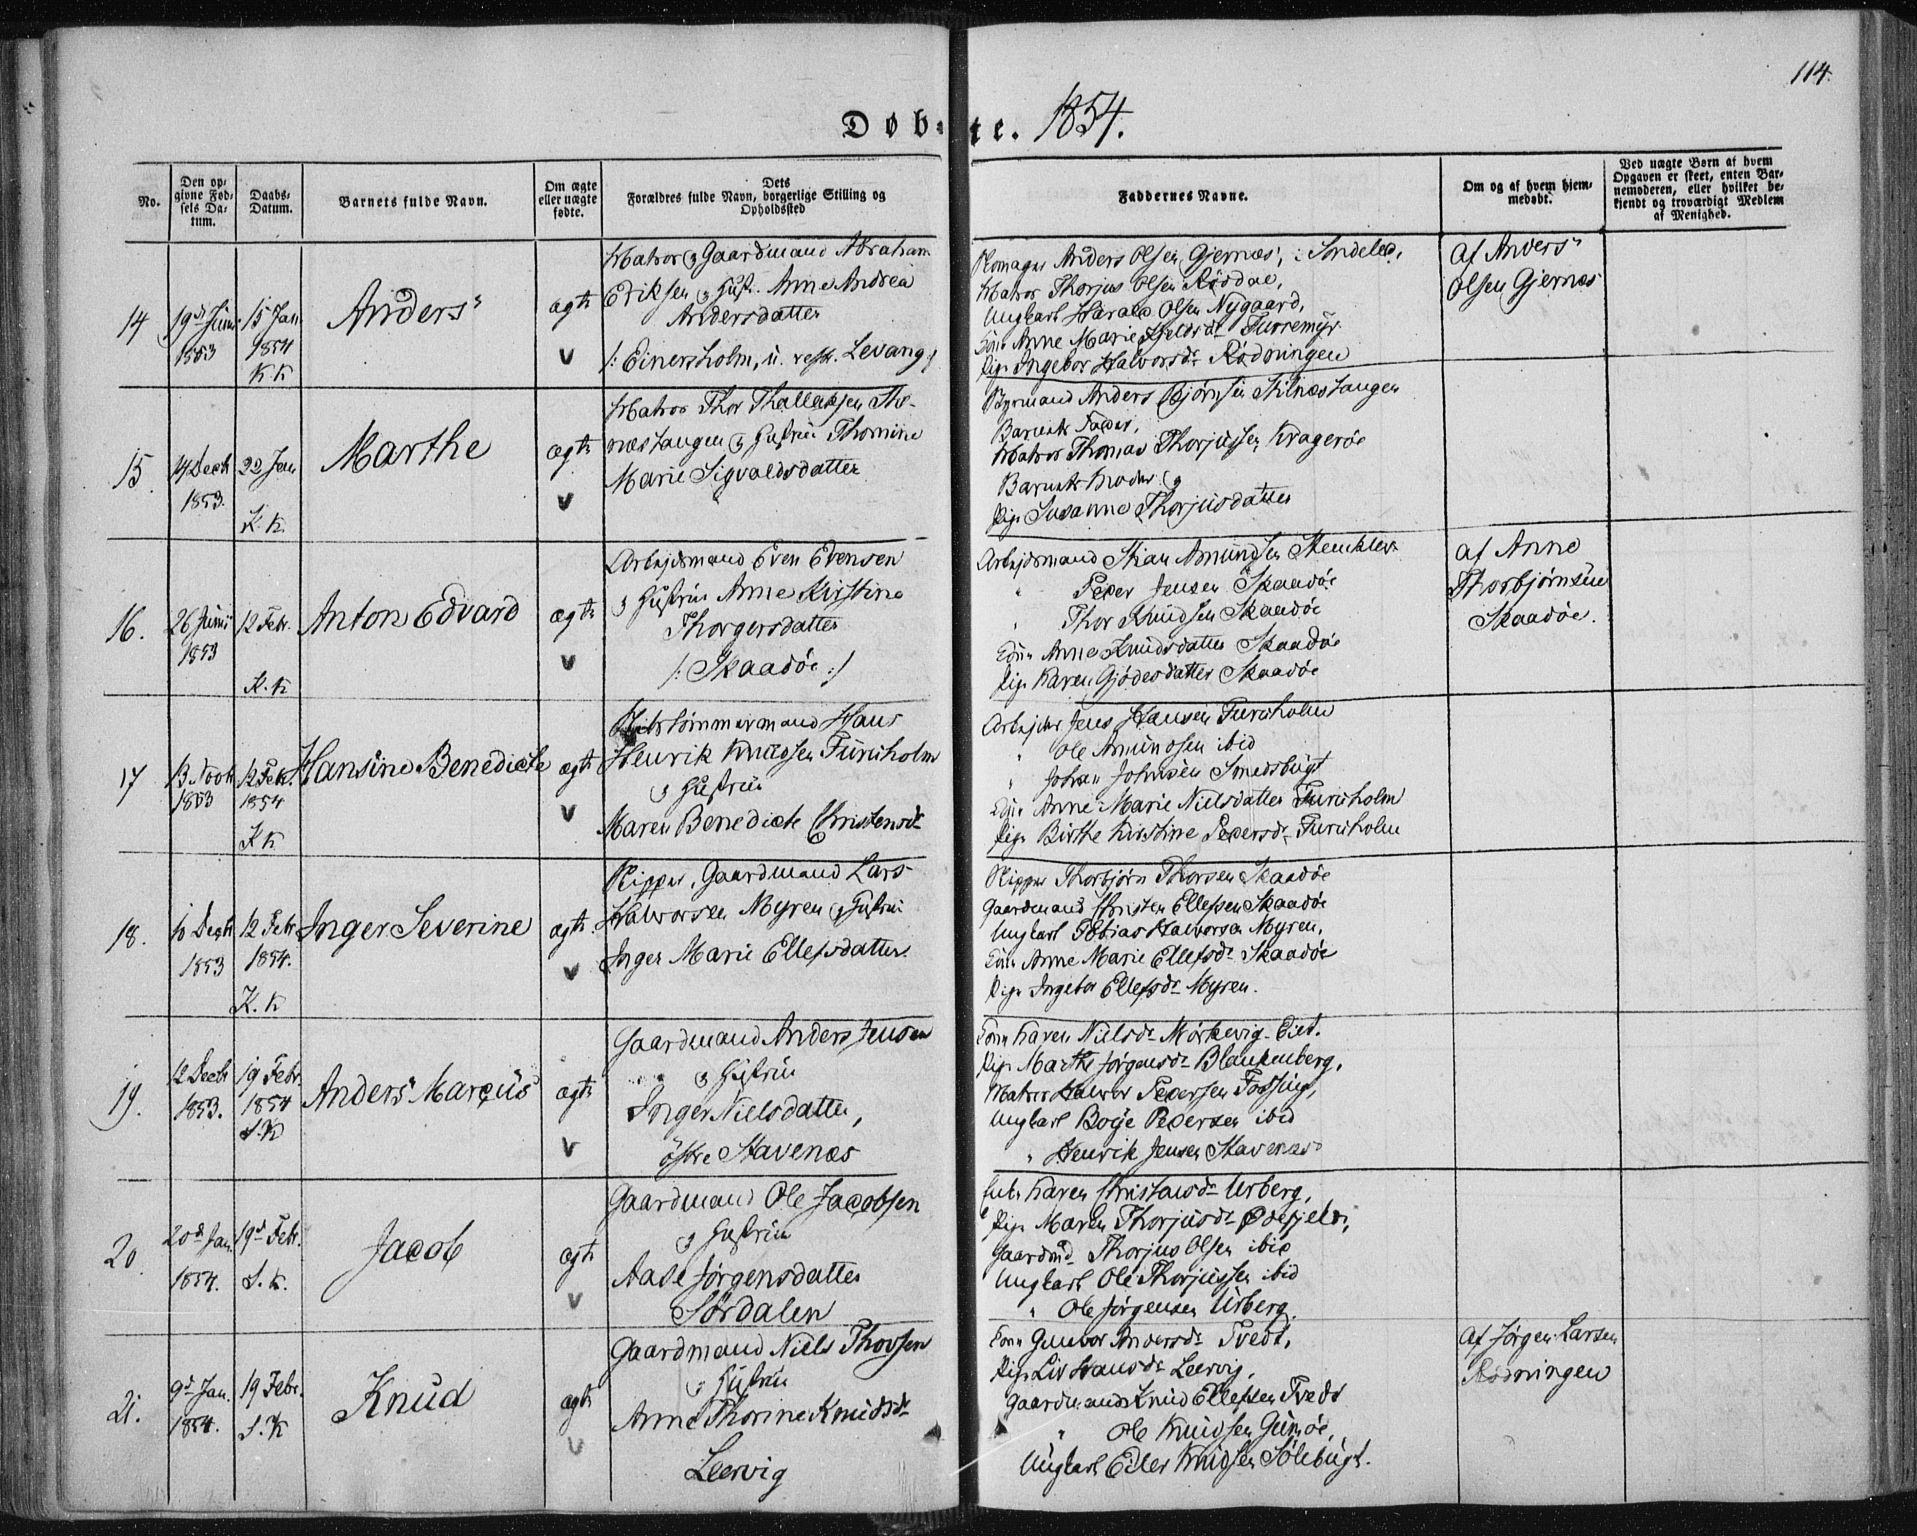 114.
Døbte. 1854.
No.
Den opgivne Fødsels Datum.
Daabs-Datum.
Barnets fulde Navn.
Om ægte eller uægte fødte.
Dets Forældres fulde Navn, borgerlige Stilling og Opholdssted
Faddernes Navne.
Om og af hvem hjemmedøbt.
Ved uægte Børn af hvem Opgaven er skeet, enten Barnemoderen, eller hvilket bekjendt og troværdigt Medlem af Menighed.
14
19d Juni 1853
15 Jan. 1854 K K
Anders
ægte
v
Matros & Gaardmand Abraham
Eriksen & Hustr. Anne Andrea
Andersdatter
/: Einersholm, u. Levang :/
Anders Olsen Gjernæs, i Søndeled,
Matros Thorjus Olsen Rørdal,
Ungkarl Harald Olsen Nygaard,
Kone Anne Marie Furremyr
Pige Ingebor Halvorsdr Rødningen
af Anders
Olsen Gjernæs
15.
4 Decbr 1853.
22 Jan K. K.
Marthe
ægte
v
Matros Thor Thallaksen
& Hustrue Thomine
Marie Sigvaldsdatter
Styrmand Anders Bjørnsen Stilnæstangen
Barnets Fader,
Matros Thomas Thorjussen Kragerøe
Barnets Moder &
Pige Susanne Thorjusdatter
16.
26 Juni 1853
12 Febr. K. K
Anton Edvard
ægte
v
Arbejdsmand Even Evensen
& Hustrue Anne Kirstine
Thorgersdatter
/: Skaadøe :/
Arbejdsmand Amundsen
" Peder Jensen Skaadøe
" Thor Knudsen Skaadøe
Kone Anne Knudsdatter Skaadøe
Pige Karen Gjødesdatter Skaadøe
af Anne
Thorbjørnsen
Skaadøe.
17
13 Novbr 1853
12 Febr 1854 K K
Hansine Benedicte
ægte
v
Skibstømmermand Hans
Henrik Knudsen Furuholm
& Hustrue
Maren Benedicte Christensdr
Arbejder Jens Hansen Furuholm
" Ole Amundsen ibid
" Johan Johnsen Smedsbugt
Kone Anne Marie Nielsdatter Furuholm
Pige Birthe Kirstine Pedersdr Furuholm
18.
10 Decbr 1853
12 Febr 1854. K. K
Inger Severine
ægte
v
Skipper, Gaardmand Lars
Halvorsen Myren & Hustrue
Inger Marie Ellefsdatter
Skipper Thorbjørn Thorsen Skaadøe
Gaardmand Christen Ellefsen Skaadøe
Ungkarl Tobias Halvorsen Myren,
Kone Anne Marie Ellefsdr Skaadøe
Pige Ingebor Ellefsdr Myren.
19.
12 Decbr 1853.
19 Febr. 1854 S. K
Anders Marcus
ægte
v
Gaardmand Anders Jensen
& Hustrue
Inger Nielsdatter,
østre Stavenæs
Kone Karen Nielsdr Mørkevig-Eiet.
Pige Marthe Jørgensdr Blankenberg,
Matros Halvor Pedersen Fossing,
Ungkarl Boye Pedersen ibid
" Henrik Jensen Stavenæs
20.
20d Jan. 1854.
19d Febr. S. K.
Jacob
ægte
v
Gaardmand Ole Jacobsen
& Hustrue
Aase Jørgensdatter
Sørdalen
Enke Karen Christensdr Urberg,
Pige Maren Thorjusdr Ødefjeld,
Gaardmd Thorjus Olsen ibid
Ungkarl Ole Thorjussen ibid
" Ole Jørgensen Urberg.
21.
9d Jan. 1854.
19 Febr. S. K
Knud
ægte
v
Gaardmand Niels Thorsen
& Hustrue
Anne Thorine Knudsdr
Leervig
Kone Gunvor Andersdr Tvedt,
Pige Liv Hansdr Leervig,
Gaardmand Knud Ellefsen Tvedt
" Ole Knudsen Gumøe,
Ungkarl Eiler Knudsen Sølebugt.
af Jørgen Larsen
Rødningen